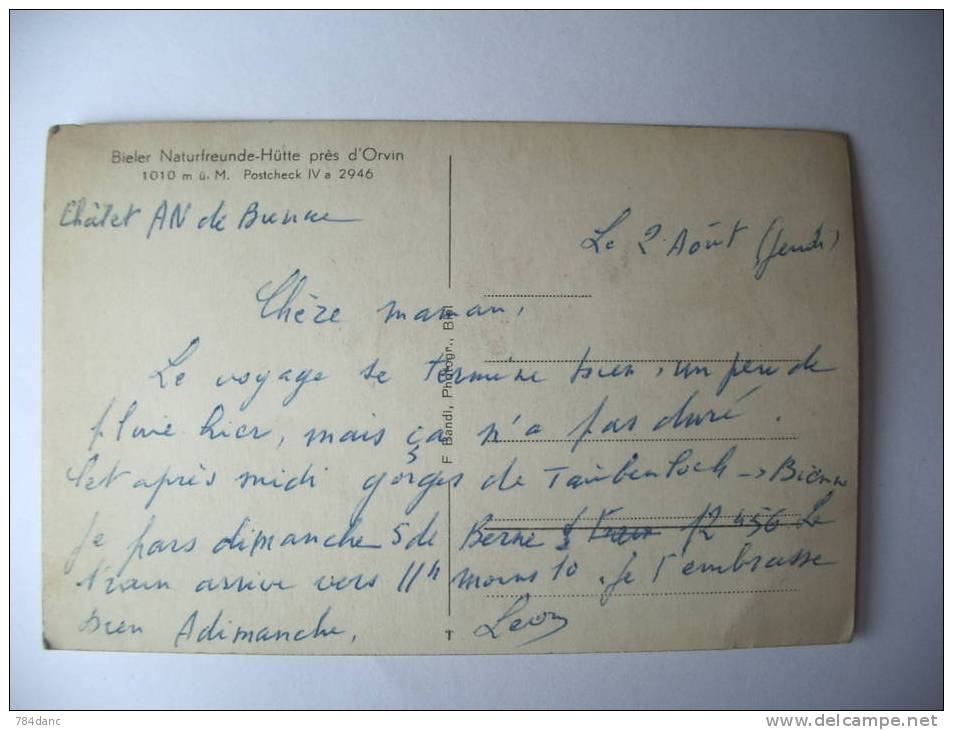 Bieler Naturfreunde-Hütte près d'Orvin
1010 m ü. M. Postcheck IV a 2946
Châlet AN de Bienne
Le 2 Août (Jeudi)
Chère maman,
Le voyage se termine bien, un peu de
pluie hier, mais ça n'a pas duré.
Cet après midi gorges de Taubenloch → Bienne
Je pars dimanche 5 de Berne 12 456 Le
train arrive vers 11h moins 10. Je t'embrasse
bien A dimanche,
Léon
F Bandi, Photogr., Biel
T
784danc
www.delcampe.net